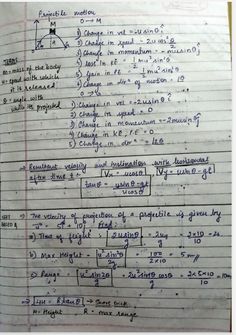 Projectile motion
O → M
M
1) Change in vel = -u sinθ ĵ
2) Change in speed
3) Change in momentum = -mu sinθ ĵ
4) loss in KE = 1/2 mu² sin²θ
5) Gain in PE = 1/2 mu² sin²θ
6) Change in dirⁿ of motion = θ
M = mass of the body
speed with which
it is released
θ = angle with
which its projected
1) Change in vel = -2u sinθ ĵ
2) Change in speed = 0
3) Change in momentum = -2mu sinθ ĵ
4) Change in KE, PE = 0
5) Change in dirⁿ
→ Resultant velocity and inclination with horizontal
after time t
Vx = u cosθ
Vy = u sinθ - gt
tanα = u sinθ - gt / u cosθ
→ The velocity of projection of a projectile is given by
Find
a) Time of flight : 2u sinθ / g = 2uy / g = 2×10 / 10 = 2s
b) Max Height = u² sin²θ / 2g = 100 / 2×10 = 5m
c) Range = u² sin2θ / g = 2u² sinθ cosθ / g = 2×5×10 / 10 = 10m
→ 4H = R tanθ → Short trick
H = Height R = max range